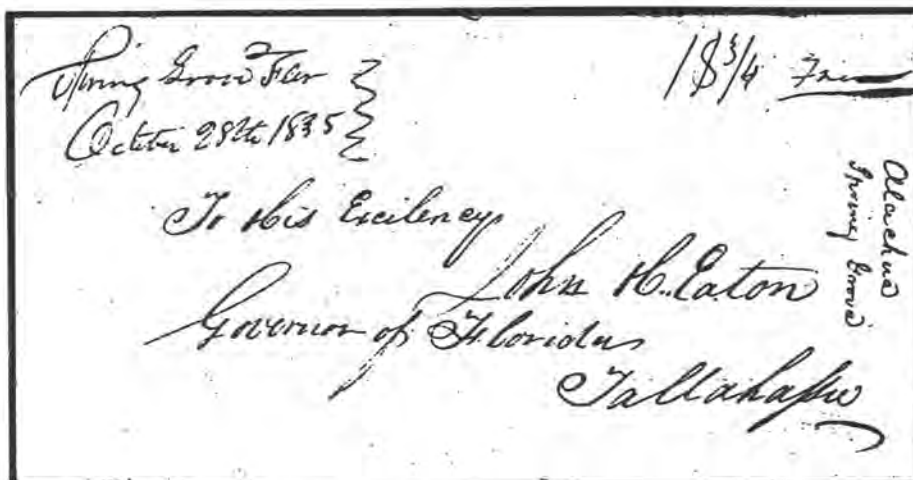 Spring Grove Flor
October 28th 1835
18 3/4 Free
To His Excilency
John H. Eaton
Governor of Florida
Tallahassee
Alachua
Spring Grove